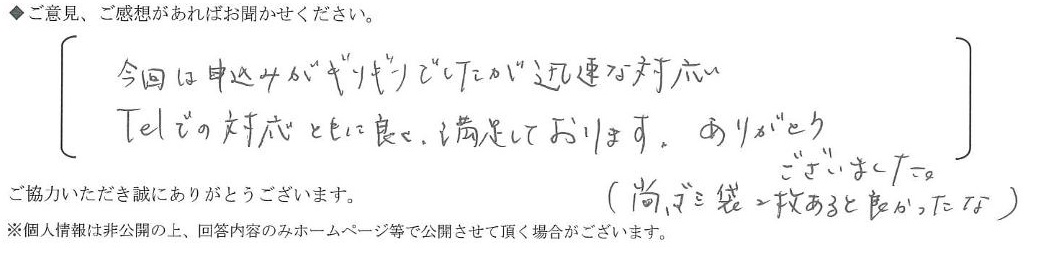 ◆ご意見、ご感想があればお聞かせください。
今回は申込みがギリギリでしたが迅速な対応い
Telでの対応ともに良く、満足しております。ありがとう
ございました。
(尚、ゴミ袋2枚あると良かったな)
ご協力いただき誠にありがとうございます。
※個人情報は非公開の上、回答内容のみホームページ等で公開させて頂く場合がございます。